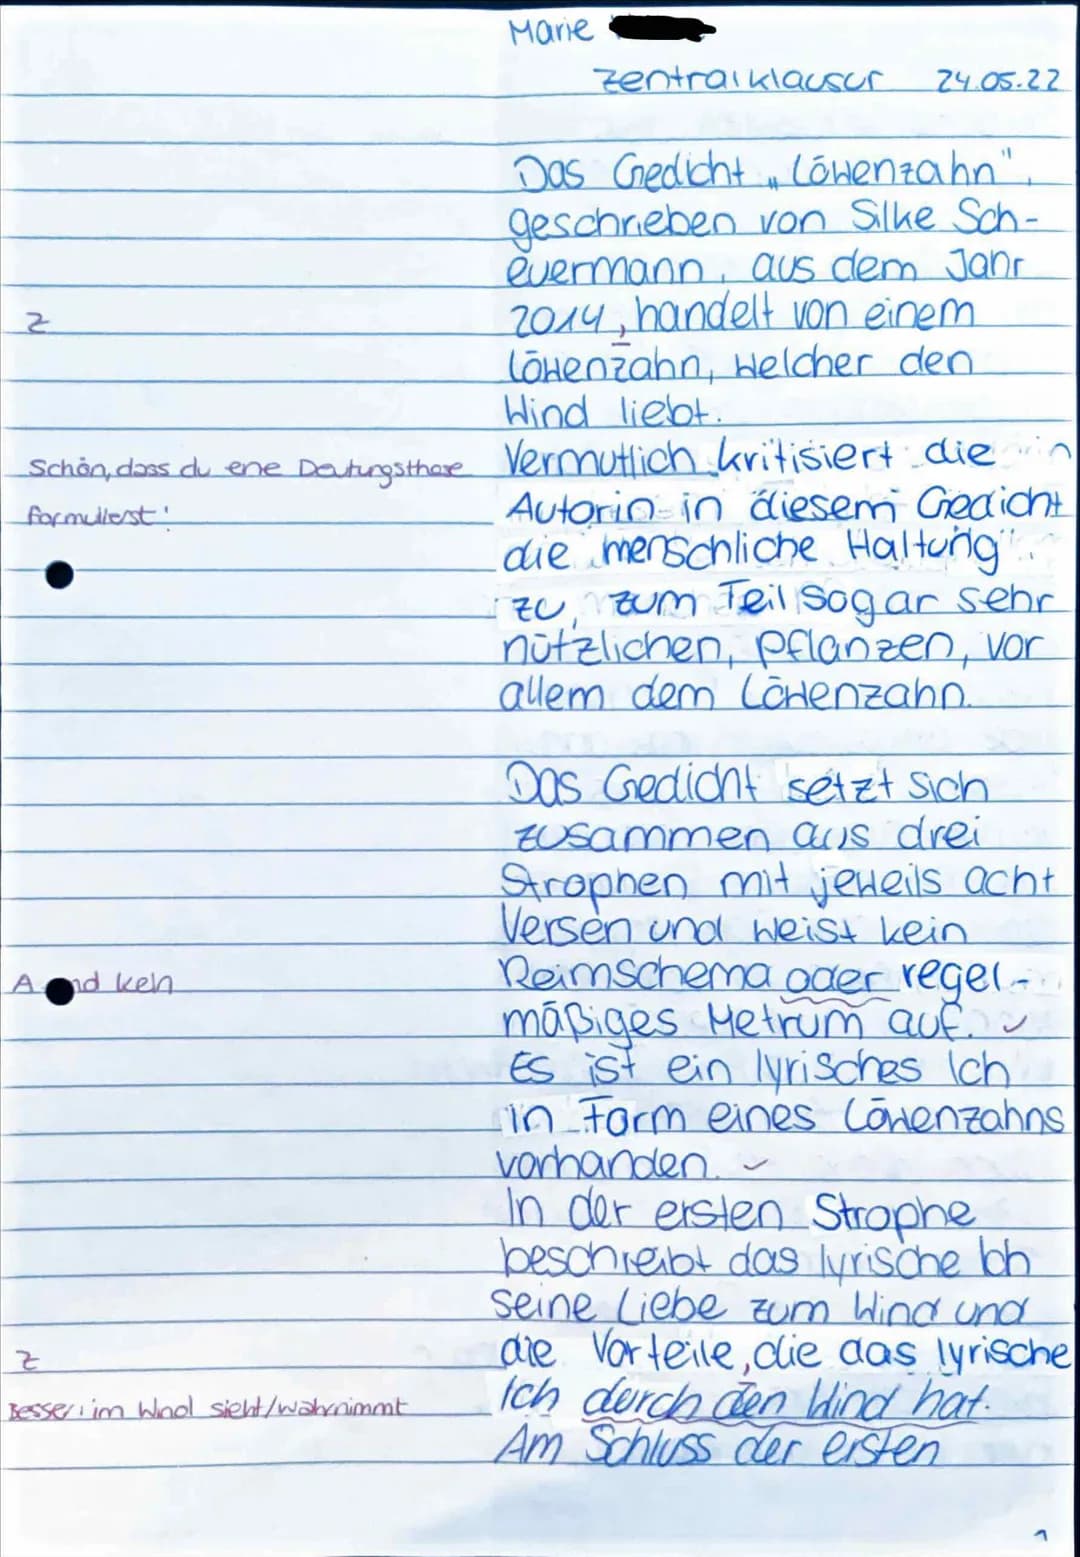 Marie
Zentralklausur 24.05.22
Das Gedicht „Löwenzahn",
geschrieben von Silke Sch-
euermann, aus dem Jahr
Z
2014, handelt von einem
Löwenzahn, welcher den
Wind liebt.
Schön, dass du eine Deutungsthese
formulierst!
Vermutlich kritisiert die
Autorin in diesem Gedicht
die menschliche Haltung
zu, zum Teil sogar sehr
nützlichen, Pflanzen, vor
allem dem Löwenzahn.
Das Gedicht setzt sich
zusammen aus drei
Strophen mit jeweils acht
Versen und weist kein
A nd kein
Reimschema oder regel-
mäßiges Metrum auf. ✓
Es ist ein lyrisches Ich
in Form eines Löwenzahns
vorhanden. ✓
In der ersten Strophe
beschreibt das lyrische Ich
seine Liebe zum Wind und
Z
die Vorteile, die das lyrische
Besser: im Wind sieht/wahrnimmt
Ich durch den Wind hat.
Am Schluss der ersten
1